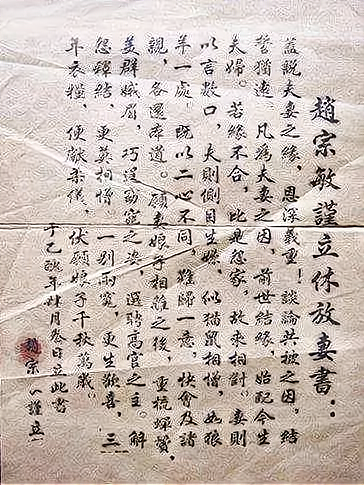 趙宗敏謹立休放妻書：
蓋說夫妻之緣，恩深義重！談論共被之因，結
誓猶遠。凡為夫妻之因，前世結緣，始配今生
夫婦。若緣不合，比是怨家，故來相對。妻則
以言數口，夫則側目生嫌，似貓鼠相憎，如狼
羊一處。既以二心不同，難歸一意，快會及諸
親，各還本道。願妻娘子相離之後，重梳蟬鬢，
美群娥眉，巧逞窈窕之姿，選聘高官之主。解
怨釋結，更莫相憎。一別兩寬，更生歡喜，三
年衣糧，便獻柔儀，伏願娘子千秋萬歲。
于乙年月叁日立此書
趙宗謹立